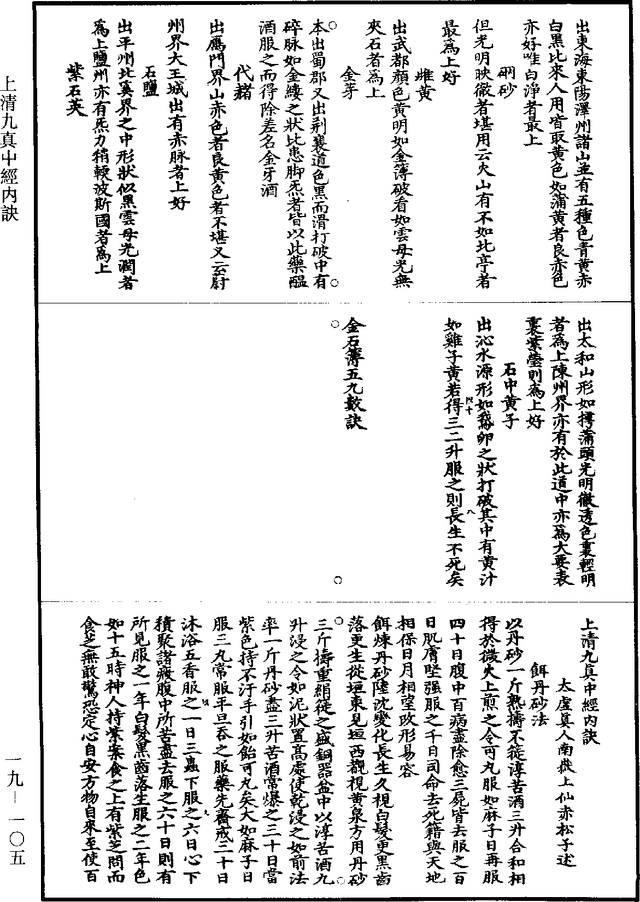 出東海東陽澤州諸山並有五種色青黃赤
白黑比來人用皆取黃色如蒲黃者良赤色
亦好唯白淨者最上
硇砂
但光明映徹者堪用云火山有不如北亭者
最為上好
雌黃
出武都顏色黃明如金簿破看如雲母光無
夾石者為上
金芽
本出蜀郡又出荊襄道色黑而滑打破中有
碎脉如金縷之狀比患脚炁者皆以此藥醞
酒服之而得除差名金牙酒
代赭
出鴈門界山赤色者良黃色者不堪又云尉
州界大王城出有赤脉者上好
石鹽
出平州北奚界之中形狀似黑雲母光潤者
為上鹽州亦有炁力稍輭波斯國者為上
紫石英
出太和山形如摴蒲頭光明徹透色裏輕明
者為上陳州界亦有於此道中亦為大要表
裏紫瑩則為上好
石中黃子
出沁水源形如鵝卵之狀打破其中有黃汁
如雞子黃若得三二升服之則長生不死矣
金石簿五九數訣
上清九真中經內訣
太虛真人南嶽上仙赤松子述
餌丹砂法
以丹砂一斤熟擣不篵淳苦酒三升合和相
得於微火上煎之令可丸服如麻子日再服
四十日腹中百病盡除愈三屍皆去服之百
日肌膚堅强服之千日司命去死籍與天地
相保日月相望改形易容
餌煉丹砂陸沈變化長生久視白髮更黑齒
落更生從垣東見垣西觀視黃泉方用丹砂
三斤擣重絹篵之盛銅器盆中以淳苦酒九
升浸之令如泥狀置高處使乾浸之如前法
率一斤丹砂盡三升苦酒常爆之三十日當
紫色持不汙手引如飴可丸矣大如麻子日
服三丸常服平旦吞之服藥先齋戒三十日
沐浴五香服之一日三蟲下服之六日心下
積聚諸疲腹中所苦盡去服之六十日則有
所見服之一年白髮黑齒落生服之二年色
如十五時神人持紫案食之上有紫芝問而
食芝無敢驚恐定心自安方物自來至使百
上清九真中經內訣
一九—一〇五